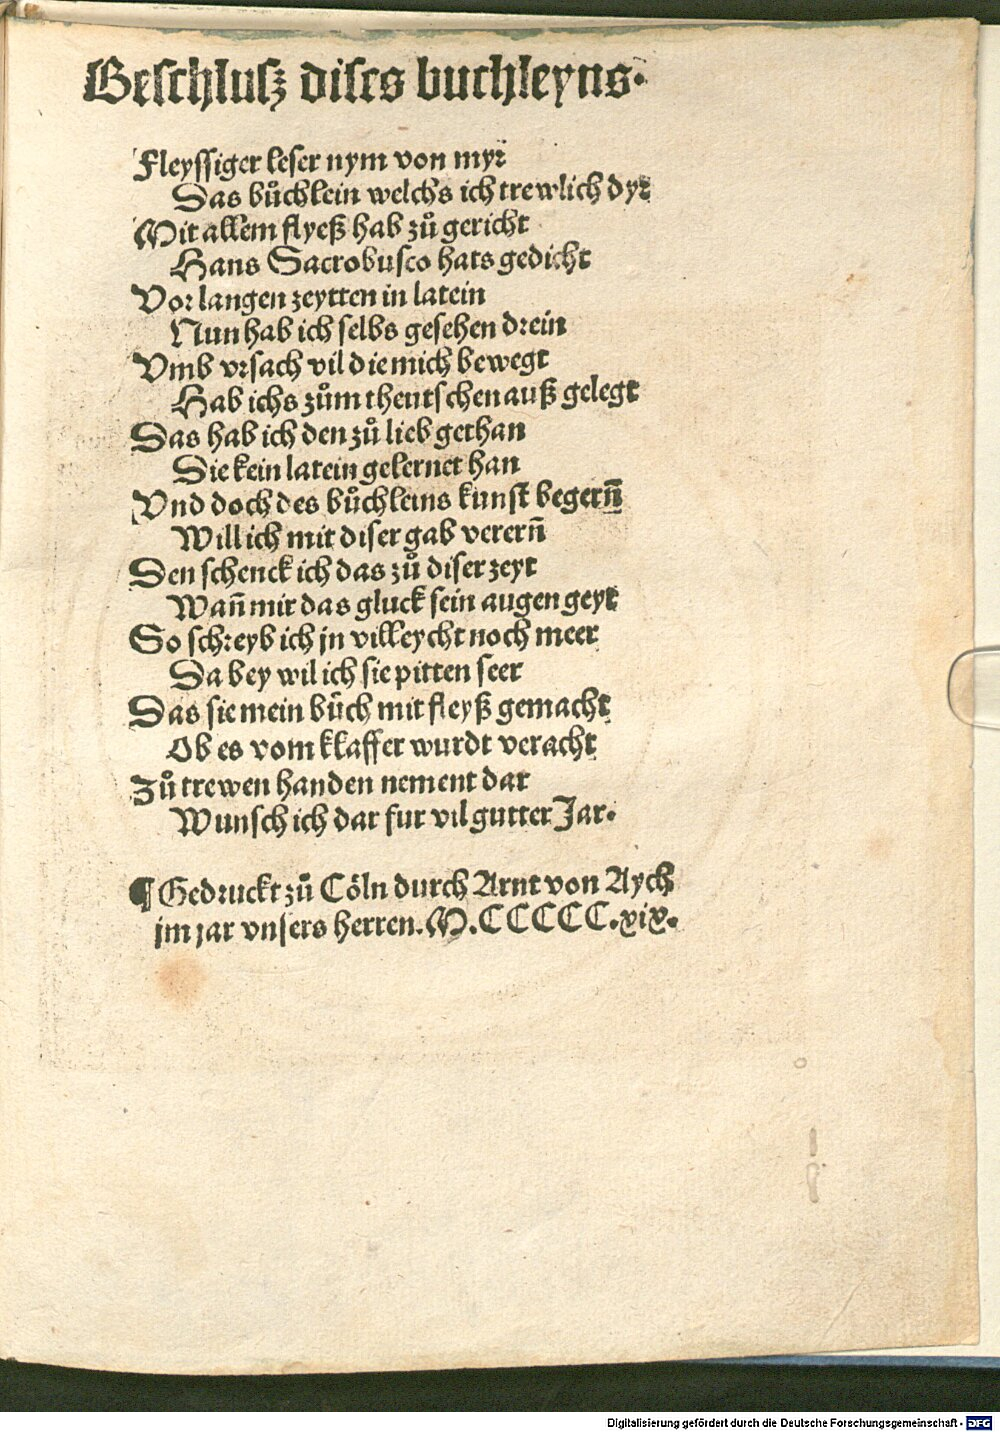 Beschlusz dises buchleyns.
Fleyssiger leser nym von myr
Das bůchlein welchs ich trewlich dyr
Mit allem flyeß hab zů gericht
Hans Sacrobusco hats gedicht
Vor langen zeytten in latein
Nun hab ich selbs gesehen drein
Vmb vrsach vil die mich bewegt
Hab ichs zům theutschen auß gelegt
Das hab ich den zů lieb gethan
Die kein latein gelernet han
Vnd doch des bůchleins kunst begern̄
Will ich mit diser gab verern̄
Den schenck ich das zů diser zeyt
Wan̄ mir das gluck sein augen geyt
So schreyb ich jn villeycht noch meer
Da bey wil ich sie pitten seer
Das sie mein bůch mit fleyß gemacht
Ob es vom klaffer wurdt veracht
Zů trewen handen nement dar
Wunsch ich dar fur vil gutter Jar.
¶ Gedruckt zů Cöln durch Arnt von Aych
jm jar vnsers herren. M.CCCCC.xix.
Digitalisierung gefördert durch die Deutsche Forschungsgemeinschaft - DFG